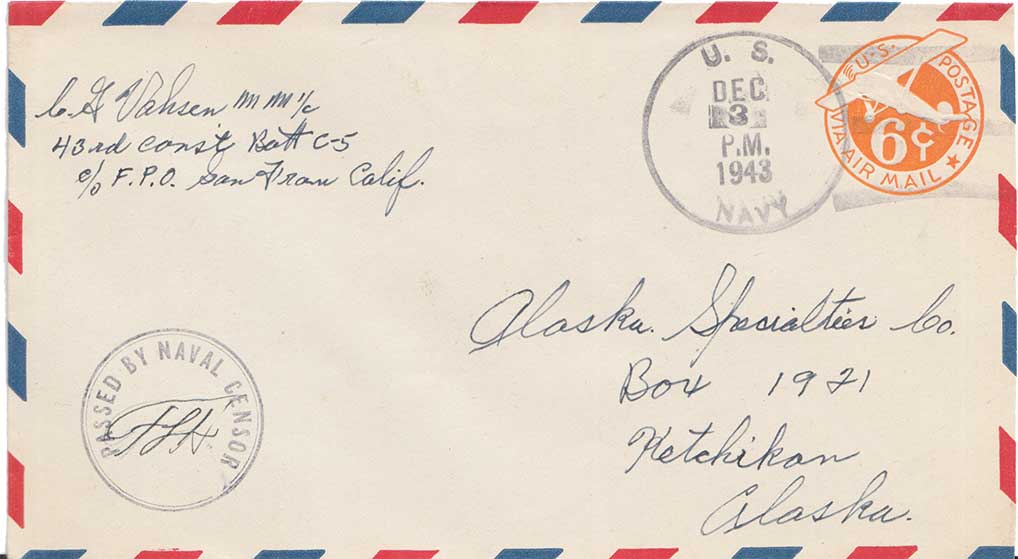 C. H Vahsen M M 1/c
43rd Const Batt C-5
c/o F.P.O. San Fran Calif.
U. S.
DEC
3
P.M.
1943
NAVY
U.S. POSTAGE
6¢
VIA AIR MAIL
Alaska Specialties Co.
Box 1921
Ketchikan
Alaska.
PASSED BY NAVAL CENSOR